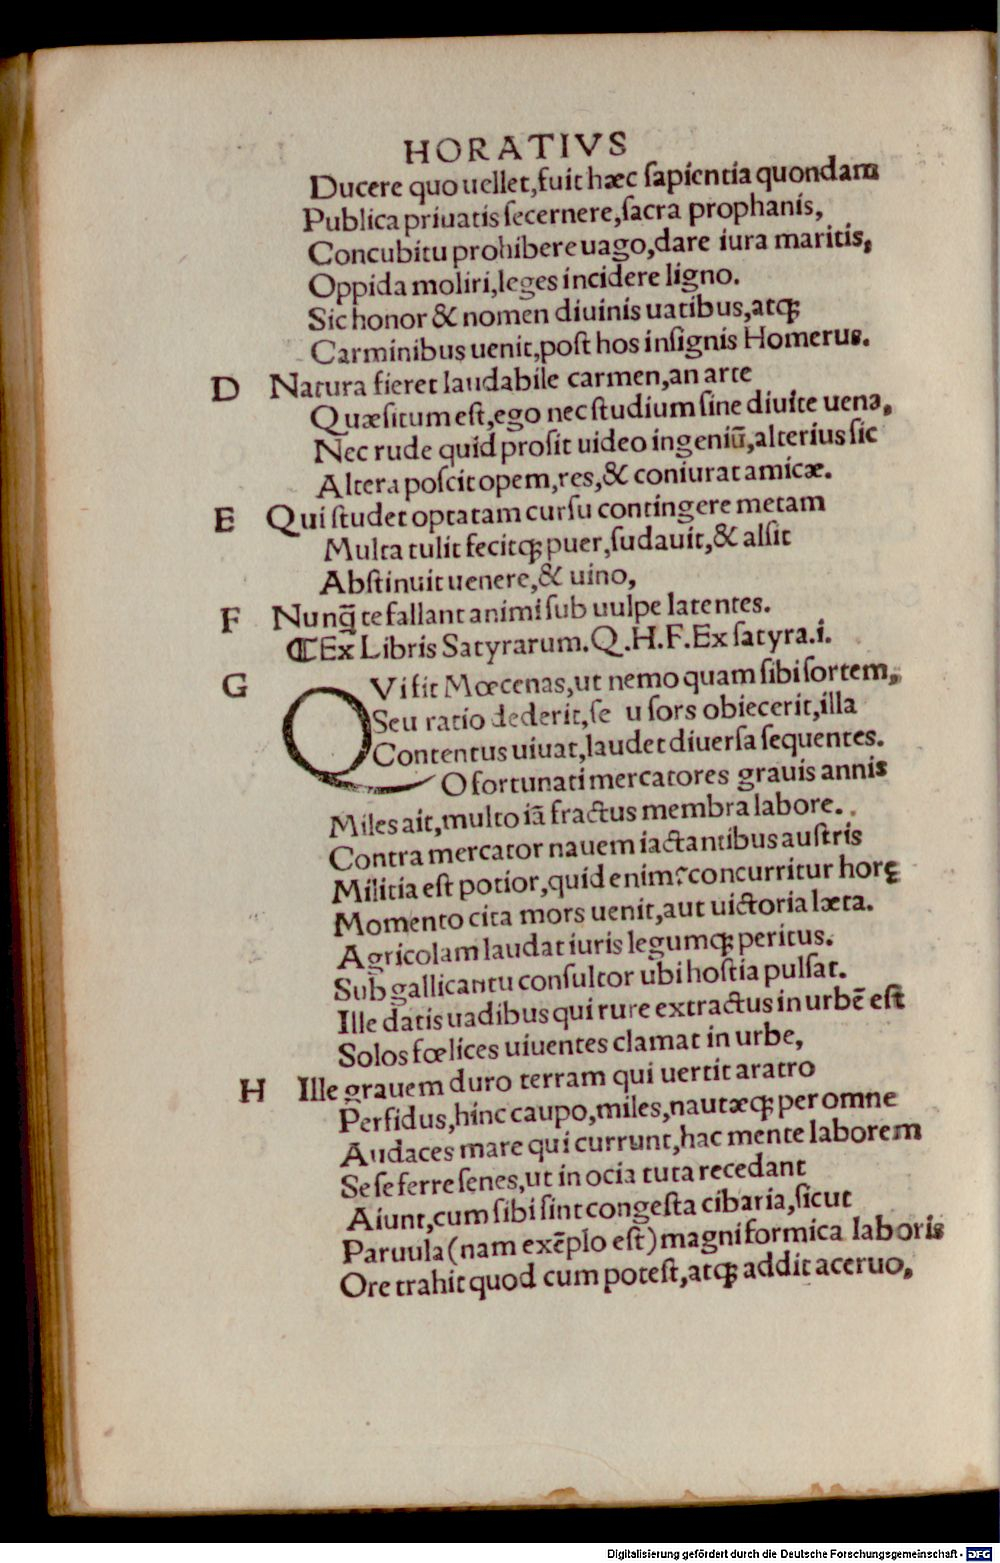 HORATIVS
Ducere quo uellet,fuit hæc sapientia quondam
Publica priuatis secernere,sacra prophanis,
Concubitu prohibere uago,dare iura maritis,
Oppida moliri,leges incidere ligno.
Sic honor & nomen diuinis uatibus,atqꝫ
Carminibus uenit,post hos insignis Homerus.
D Natura fieret laudabile carmen,an arte
Quæsitum est,ego nec studium sine diuite uena,
Nec rude quid prosit uideo ingeniū,alterius sic
Altera poscit opem,res,& coniurat amicæ.
E Qui studet optatam cursu contingere metam
Multa tulit fecitqꝫ puer,sudauit,& alsit
Abstinuit uenere,& uino,
F Nunq̃ te fallant animi sub uulpe latentes.
⸿Ex Libris Satyrarum.Q.H.F.Ex satyra.i.
G QVi fit Mœcenas,ut nemo quam sibi sortem,
Seu ratio dederit,se u sors obiecerit,illa
Contentus uiuat,laudet diuersa sequentes.
O fortunati mercatores grauis annis
Miles ait,multo iã fractus membra labore.
Contra mercator nauem iactantibus austris
Militia est potior,quid enim?concurritur horę
Momento cita mors uenit,aut uictoria læta.
Agricolam laudat iuris legumqꝫ peritus.
Sub gallicantu consultor ubi hostia pulsat.
Ille datis uadibus qui rure extractus in urbē est
Solos fœlices uiuentes clamat in urbe,
H Ille grauem duro terram qui uertit aratro
Perfidus,hinc caupo,miles,nautæqꝫ per omne
Audaces mare qui currunt,hac mente laborem
Sese ferre senes,ut in ocia tuta recedant
Aiunt,cum sibi sint congesta cibaria,sicut
Paruula(nam exēplo est)magni formica laboris
Ore trahit quod cum potest,atqꝫ addit aceruo,
Digitalisierung gefördert durch die Deutsche Forschungsgemeinschaft - DFG